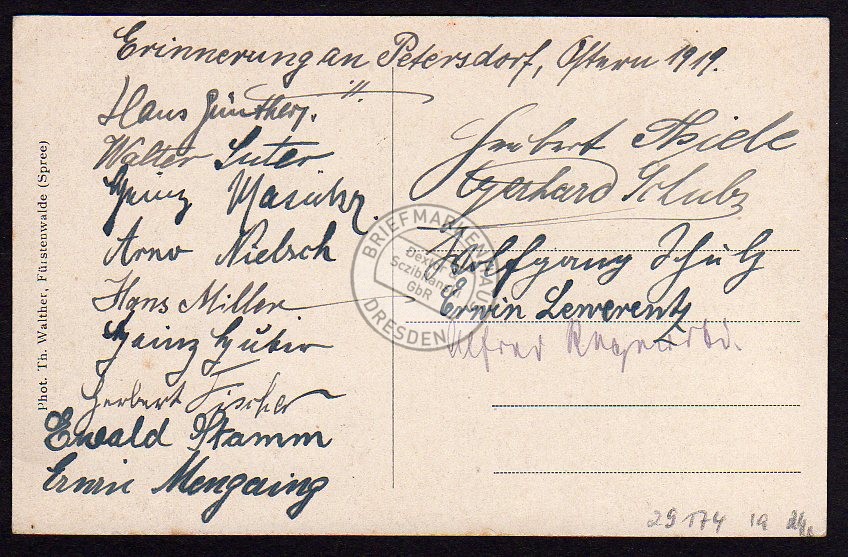 Erinnerung an Petersdorf, Ostern 1919.
Hans Günther.
Walter Suter
Heinz
Arno Nielsch
Hans Miller
Heinz Huber
Herbert Fischer
Ewald Stamm
Erwin Mengaing
Herbert Thiele
Gerhard Schubz
Wolfgang Schulz
Erwin Lewerentz
Alfred
Phot. Th. Walther, Fürstenwalde (Spree)
BRIEFMARKENHAUS
Dexheimer
Sczibilanski
GbR
DRESDEN
29174 1a